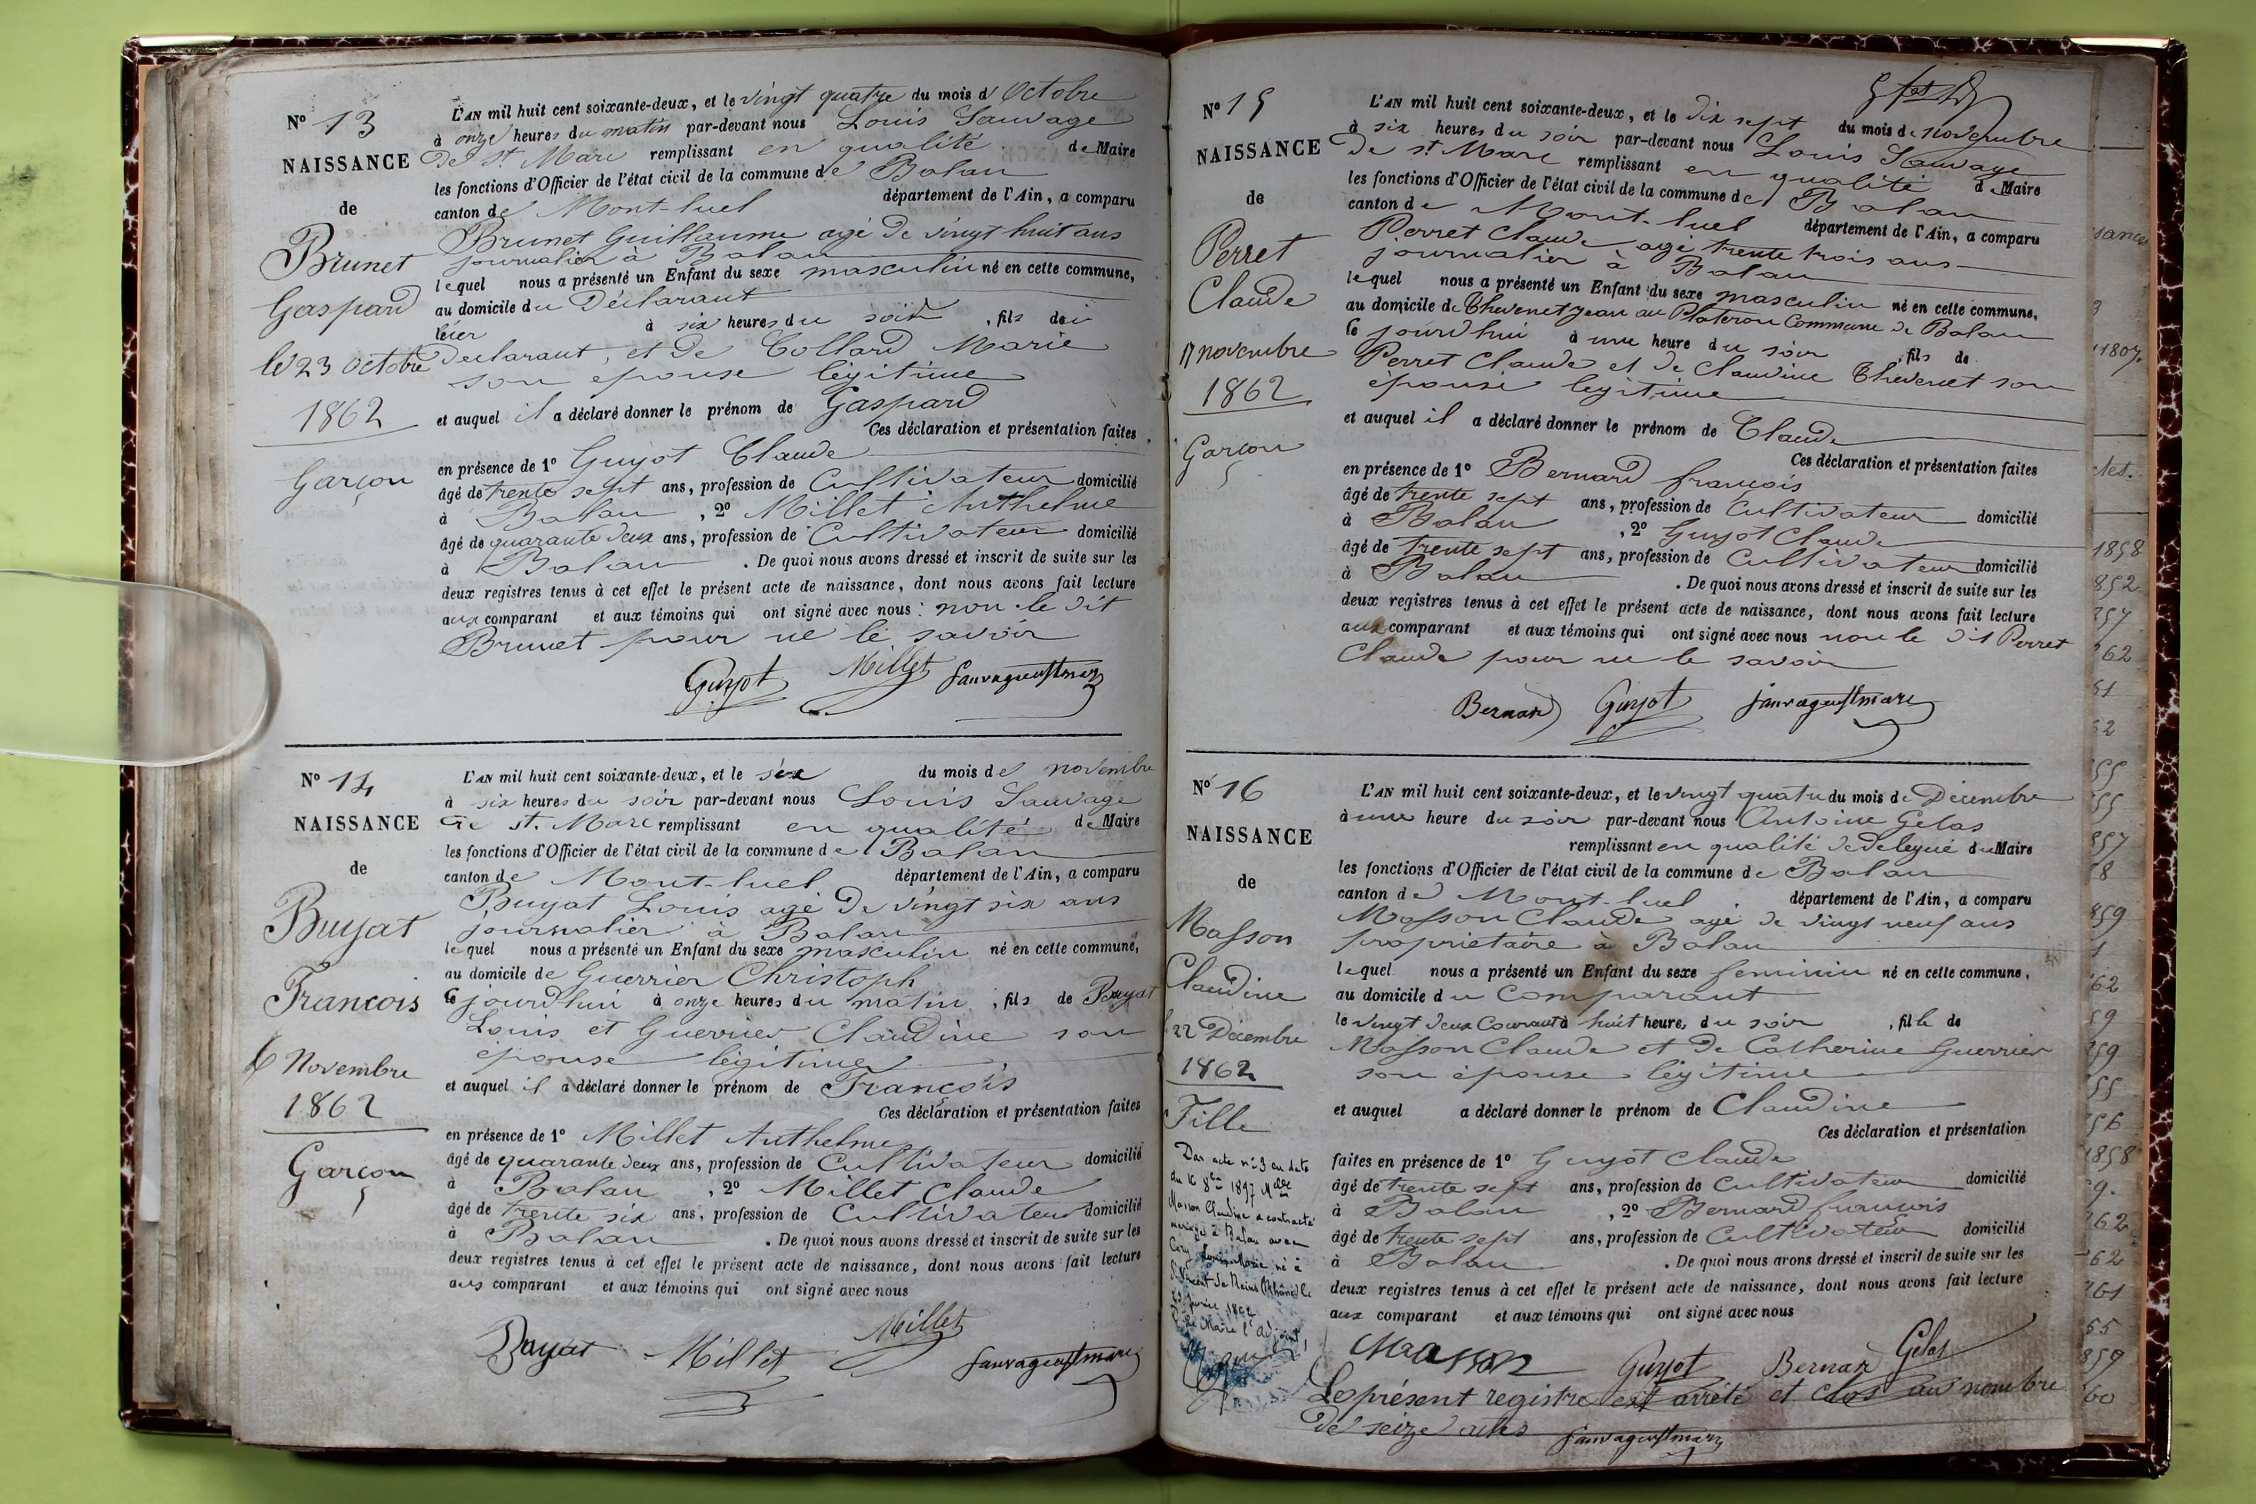 N° 13
NAISSANCE
de
Brunet
Gaspard
le 23 octobre
1862
Garçon
L'AN mil huit cent soixante-deux, et le vingt quatre du mois d'Octobre
à onze heures du matin par-devant nous Louis Sauvage
de St. Marc remplissant en qualité de Maire
les fonctions d'Officier de l'état civil de la commune de Balan
canton de Mont-luel département de l'Ain, a comparu
Brunet Guillaume agé de vingt huit ans
journalier à Balan
lequel nous a présenté un Enfant du sexe masculin né en cette commune,
au domicile du Déclarant
à six heures du soir, fils de
déclarant, et de Collard Marie
son épouse légitime
et auquel il a déclaré donner le prénom de Gaspard
Ces déclaration et présentation faites
en présence de 1° Guyot Claude
âgé de trente sept ans, profession de Cultivateur domicilié
à Balan, 2° Millet Anthelme
âgé de quarante deux ans, profession de Cultivateur domicilié
à Balan. De quoi nous avons dressé et inscrit de suite sur les
deux registres tenus à cet effet le présent acte de naissance, dont nous avons fait lecture
aux comparant et aux témoins qui ont signé avec nous : non le dit
Brunet pour ne le savoir
Guyot Millet Sauvage de St marc
N° 14
NAISSANCE
de
Buyat
François
6 Novembre
1862
Garçon
L'AN mil huit cent soixante-deux, et le six du mois de novembre
à six heures du soir par-devant nous Louis Sauvage
de St. Marc remplissant en qualité de Maire
les fonctions d'Officier de l'état civil de la commune de Balan
canton de Mont-luel département de l'Ain, a comparu
Buyat Louis agé de vingt six ans
journalier à Balan
lequel nous a présenté un Enfant du sexe masculin né en cette commune,
au domicile de Guerrier Christoph
le jourd'hui à onze heures du matin, fils de Buyat
Louis et Guerrier Claudine son
épouse légitime
et auquel il a déclaré donner le prénom de François
Ces déclaration et présentation faites
en présence de 1° Millet Anthelme
âgé de quarante deux ans, profession de Cultivateur domicilié
à Balan, 2° Millet Claude
âgé de trente six ans, profession de Cultivateur domicilié
à Balan. De quoi nous avons dressé et inscrit de suite sur les
deux registres tenus à cet effet le présent acte de naissance, dont nous avons fait lecture
aux comparant et aux témoins qui ont signé avec nous
Buyat Millet Millet Sauvage de St marc
N° 15
NAISSANCE
de
Perret
Claude
17 novembre
1862
Garçon
L'AN mil huit cent soixante-deux, et le dix sept du mois de novembre
à six heures du soir par-devant nous Louis Sauvage
de St. Marc remplissant en qualité de Maire
les fonctions d'Officier de l'état civil de la commune de Balan
canton de Mont-luel département de l'Ain, a comparu
Perret Claude agé trente trois ans
journalier à Balan
lequel nous a présenté un Enfant du sexe masculin né en cette commune,
au domicile de Thevenet Jean au Plateron Commune de Balan
le jourd'hui à une heure du soir, fils de
Perret Claude et de Claudine Thevenet son
épouse légitime
et auquel il a déclaré donner le prénom de Claude
Ces déclaration et présentation faites
en présence de 1° Bernard françois
âgé de trente sept ans, profession de Cultivateur domicilié
à Balan, 2° Guyot Claude
âgé de trente sept ans, profession de Cultivateur domicilié
à Balan. De quoi nous avons dressé et inscrit de suite sur les
deux registres tenus à cet effet le présent acte de naissance, dont nous avons fait lecture
aux comparant et aux témoins qui ont signé avec nous non le dit Perret
Claude pour ne le savoir
Bernard Guyot Sauvage de St marc
N° 16
NAISSANCE
de
Masson
Claudine
22 Décembre
1862
Fille
Par acte n° 3 en date
du 16 8bre 1897 Mlle
Masson Claudine a contracté
mariage à Balan avec
né à
St Vincent de Reins (Rhône) le
1862
Le Maire l'adjoint
L'AN mil huit cent soixante-deux, et le vingt quatre du mois de Décembre
à une heure du soir par-devant nous Antoine Gelas
remplissant en qualité de délégué du Maire
les fonctions d'Officier de l'état civil de la commune de Balan
canton de Mont-luel département de l'Ain, a comparu
Masson Claude agé de vingt neuf ans
propriétaire à Balan
lequel nous a présenté un Enfant du sexe féminin né en cette commune,
au domicile du Comparant
le vingt deux Courant à huit heures du soir, fille de
Masson Claude et de Catherine Guerrier
son épouse légitime
et auquel a déclaré donner le prénom de Claudine
Ces déclaration et présentation
faites en présence de 1° Guyot Claude
âgé de trente sept ans, profession de Cultivateur domicilié
à Balan, 2° Bernard françois
âgé de trente sept ans, profession de Cultivateur domicilié
à Balan. De quoi nous avons dressé et inscrit de suite sur les
deux registres tenus à cet effet le présent acte de naissance, dont nous avons fait lecture
aux comparant et aux témoins qui ont signé avec nous
Masson Guyot Bernard Gelas
Le présent registre est arrêté et clos au nombre
de seize actes Sauvage de St marc